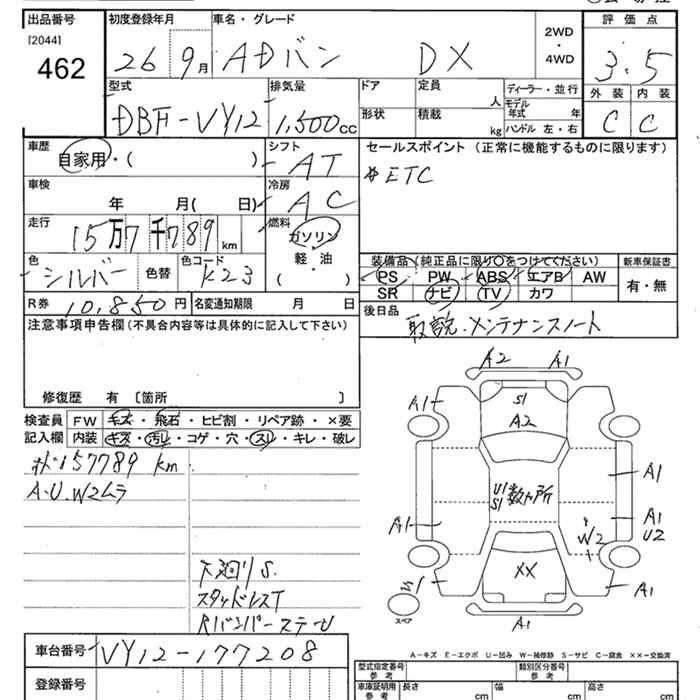 出品番号 初度登録年月 車名・グレード 評価点
[2044]
462
26 9月 ADバン DX 2WD・4WD 3.5
型式 排気量 ドア 定員 人 ディーラー・並行 外装 内装
DBF-VY12 1,500cc 形状 積載 kg モデル年式 年 ハンドル 左・右 C C
車歴 シフト セールスポイント (正常に機能するものに限ります)
自家用・( ) AT #ETC
車検 冷房
年 月( 日) AC
走行 燃料
15万7千789km ガソリン・軽・油 ( )
色 色コード 装備品(純正品に限り○をつけてください) 新車保証書
シルバー 色替 K23 PS PW ABS エアB AW 有・無
SR ナビ TV カワ
R券 10,850円 名変通知期限 月 日 後日品
取説.メンテナンスノート
注意事項申告欄(不具合内容等は具体的に記入して下さい)
修復歴 有 〔箇所 〕
検査員 FW キズ・飛石・ヒビ割・リペア跡・×要
記入欄 内装 キズ・汚レ・コゲ・穴・スレ・キレ・破レ
157789 km
A.U.W2ムラ
下廻りS.
スタッドレスT
RバンパーステーU
A2 A1
A1 S1
A2
A1
U1 S1 数ヵ所
A1 A1 U2
W2
XX
A1
A1
スペア
A-キズ E-エクボ U-凹み W-補修跡 S-サビ C-腐食 ××-交換済
車台番号 VY12-177208
登録番号
型式指定番号 参考 類別区分番号 参考
車庫証明用 参考 長さ cm 幅 cm 高さ cm